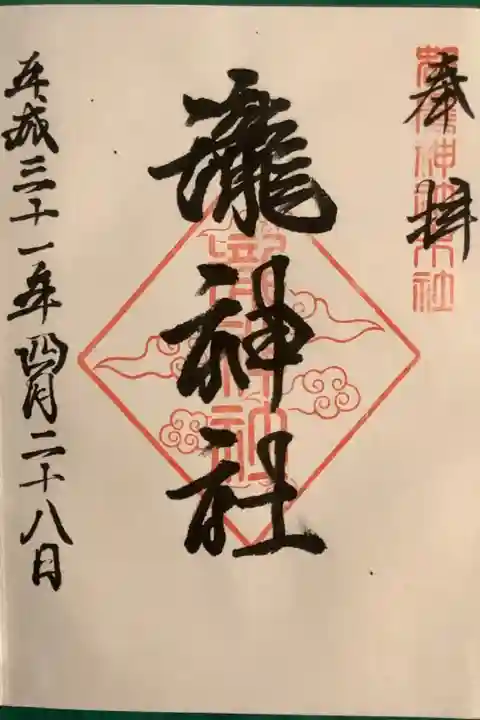 奉拝
瀧神社
瀧神社
平成三十一年四月二十八日